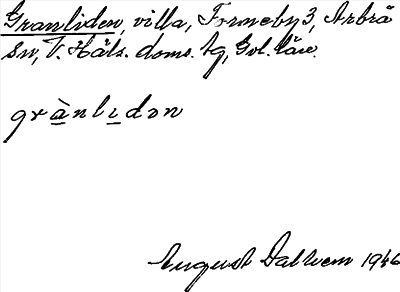 Granliden, villa, Forneby 3, Arbrå
sn, V. Häls. doms. tg, Gvl. län.
grànlıdən
August Dalwem 1946